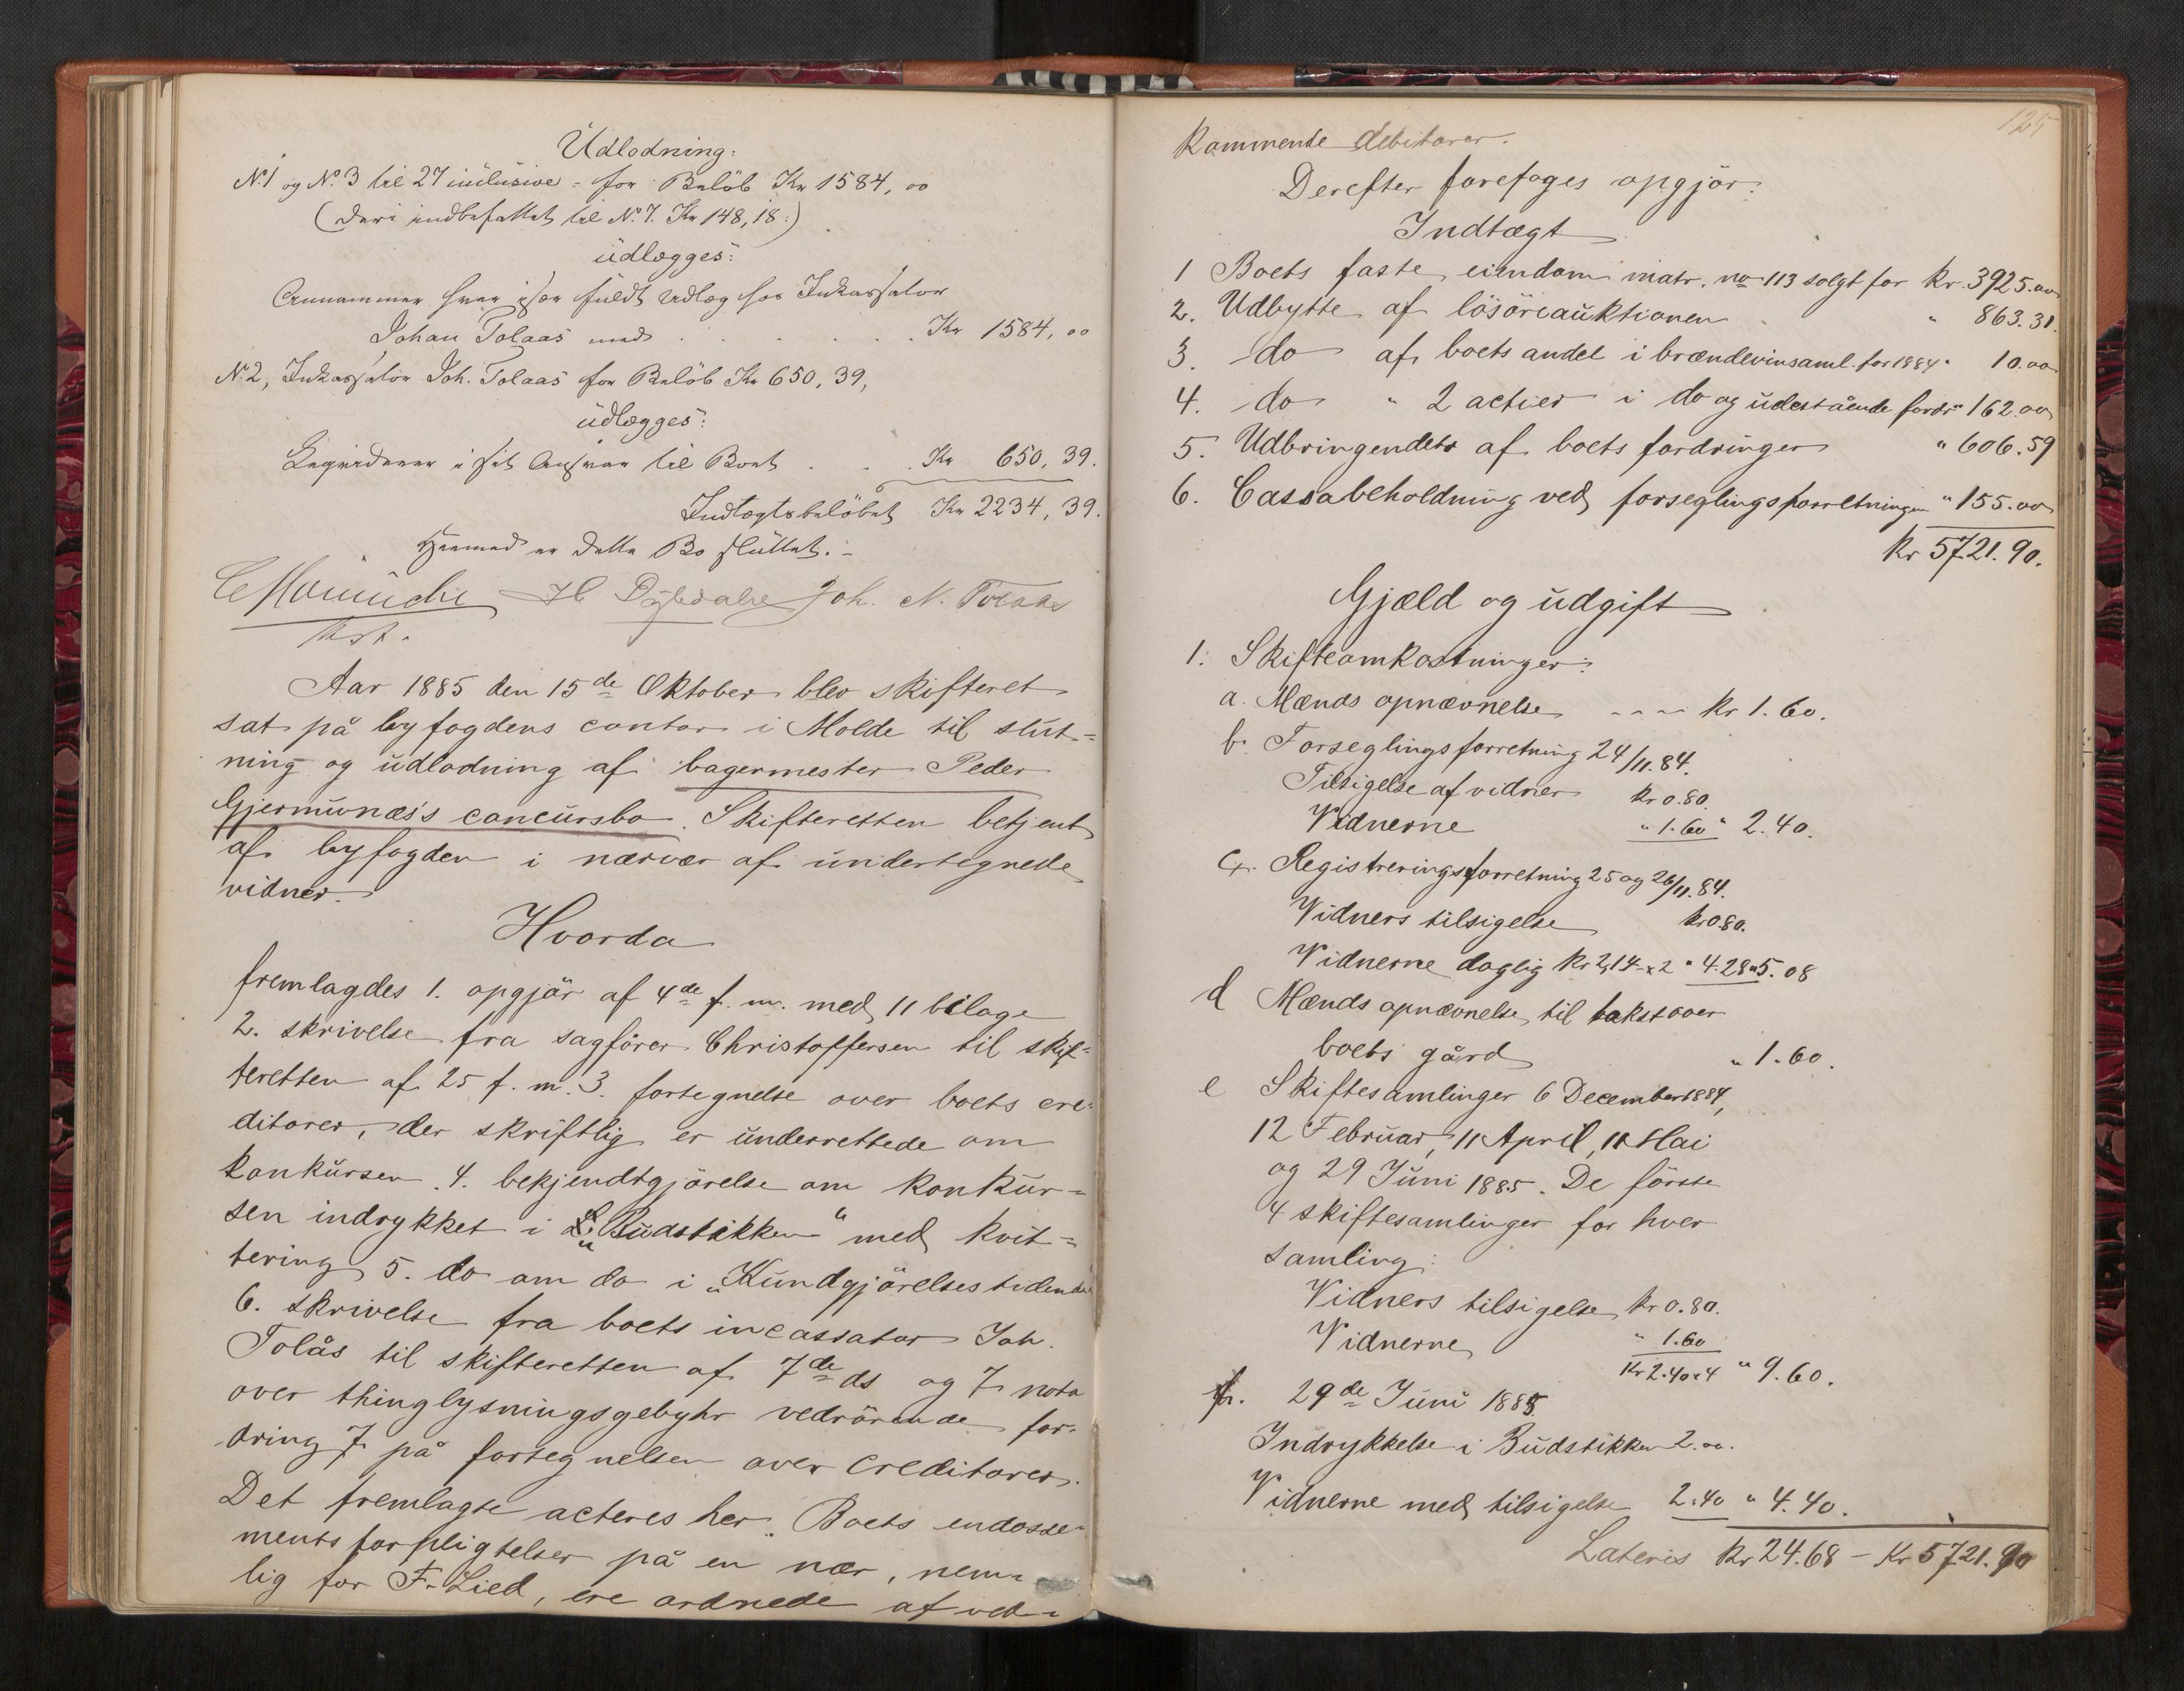 Udlodning:
No. 1 og No. 3 til 27 inclusive - for Beløb Kr 1584,00
(deri indbefattet til No. 7. Kr 148,18:)
udlægges:
Annammer hver især fuldt Udlæg hos Inkassator
Johan Tolaas med . . . . . . Kr 1584,00
No. 2, Inkassator Joh. Tolaas for Beløb Kr 650,39,
udlægges:
Liquiderer i sit Ansvar til Boet . . . Kr 650,39.
Indtægtsbeløbet Kr 2234,39.
Hermed er dette Bo sluttet. -
Joh. N. Tolaas
Aar 1885 den 15de Oktober blev skifteret
sat på byfogdens contor i Molde til slut=
ning og udlodning af bagermester Peder
Gjermunæs's concursbo. Skifteretten betjent
af byfogden i nærvær af undertegnede
vidner.
Hvorda
fremlagdes 1. opgjör af 4de f. m. med 11 bilage
2. skrivelse fra sagförer Christoffersen til skif=
teretten af 25 f. m. 3. fortegnelse over boets cre=
ditorer, der skriftlig er underrettede om
konkursen. 4. bekjendtgjörelse om konkur=
sen indrykket i „Budstikken“ med kvit=
tering 5. do om do i „Kundgjörelsestidende“
6. skrivelse fra boets incassator Joh.
Tolås til skifteretten af 7de ds og 7 nota
over thinglysningsgebyhr vedrörende for=
dring 7 på fortegnelsen over creditorer.
Det fremlagte acteres her. Boets endosse=
mentsforpligtelser på en nær, nem=
lig for F. Lied, ere ordnede af ved=
125
kommende debitorer.
Derefter foretoges opgjör:
Indtægt
1 Boets faste eiendom matr. no 113 solgt for kr. 3925.00
2. Udbytte af lösöreauktionen " 863.31.
3. do af boets andel i brændevinsaml. for 1884 " 10.00
4. do " 2 actier i do og udestående fordr " 162.00
5. Udbringendets af boets fordringer " 606.59
6. Cassabeholdning ved forseglingsforretningen " 155.00
Kr 5721.90.
Gjæld og udgift
1. Skifteomkostninger:
a. Mænds opnævnelse - - - - kr 1.60.
b. Forseglingsforretning 24/11.84.
Tilsigelse af vidner kr 0.80.
Vidnerne " 1.60 " 2.40.
c. Registreringsforretning 25 og 26/11.84.
Vidners tilsigelse kr 0.80.
Vidnerne daglig kr 2,14 x 2 " 4.28 " 5.08
d Mænds opnævnelse til takst over
boets gård " 1.60.
e Skiftesamlinger 6 December 1884,
12 Februar, 11 April, 11 Mai
og 29 Juni 1885. De förste
4 skiftesamlinger for hver
samling:
Vidners tilsigelse kr 0.80.
Vidnerne " 1.60
Kr 2.40 x 4 " 9.60.
f. 29de Juni 1885.
Indrykkelse i Budstikken 2.00.
Vidnerne med tilsigelse 2.40 " 4.40.
Lateris kr 24.68 - Kr 5721.90